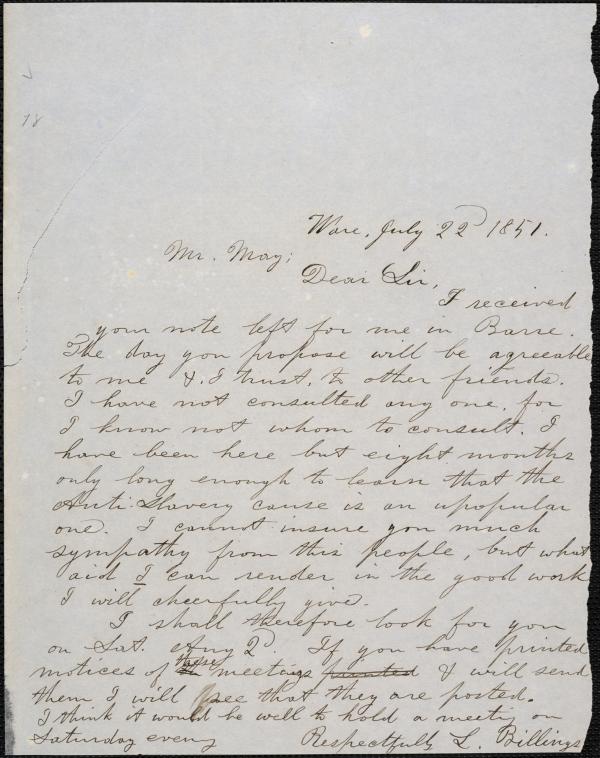 18
Ware, July 22d 1851.
Mr. May;
Dear Sir,
I received
your note left for me in Barre.
The day you propose will be agreeable
to me & I trust, to other friends.
I have not consulted any one, for
I know not whom to consult. I
have been here but eight months
only long enough to learn that the
Anti-Slavery cause is an upopular
one. I cannot insure you much
sympathy from this people, but what
aid I can render in the good work
I will cheerfully give.
I shall therefore look for you
on Sat. Aug 2d. If you have printed
notices of these meetings printed & will send
them I will see that they are posted.
I think it would be well to hold a meetig on
Saturday eveng
Respectfully L. Billings